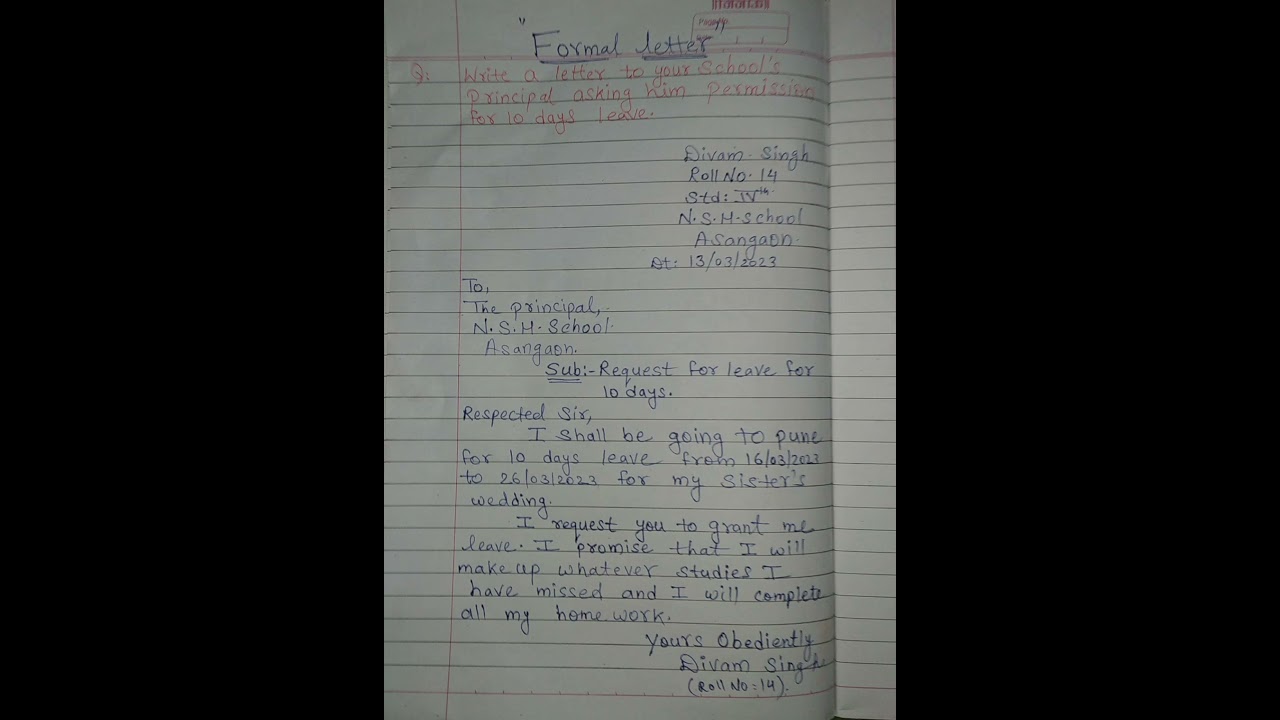 "
Formal letter
Q: Write a letter to your School's
Principal asking him permission
for 10 days leave.
Divam Singh
Roll No. 14
Std: IVth
N.S.H. School
Asangaon.
Dt: 13/03/2023
To,
The principal,
N.S.H. School.
Asangaon.
Sub:- Request for leave for
10 days.
Respected Sir,
I shall be going to pune
for 10 days leave from 16/03/2023
to 26/03/2023 for my Sister's
wedding.
I request you to grant me
leave. I promise that I will
make up whatever studies I
have missed and I will complete
all my home work.
Yours Obediently
Divam Singh
(Roll No:14).